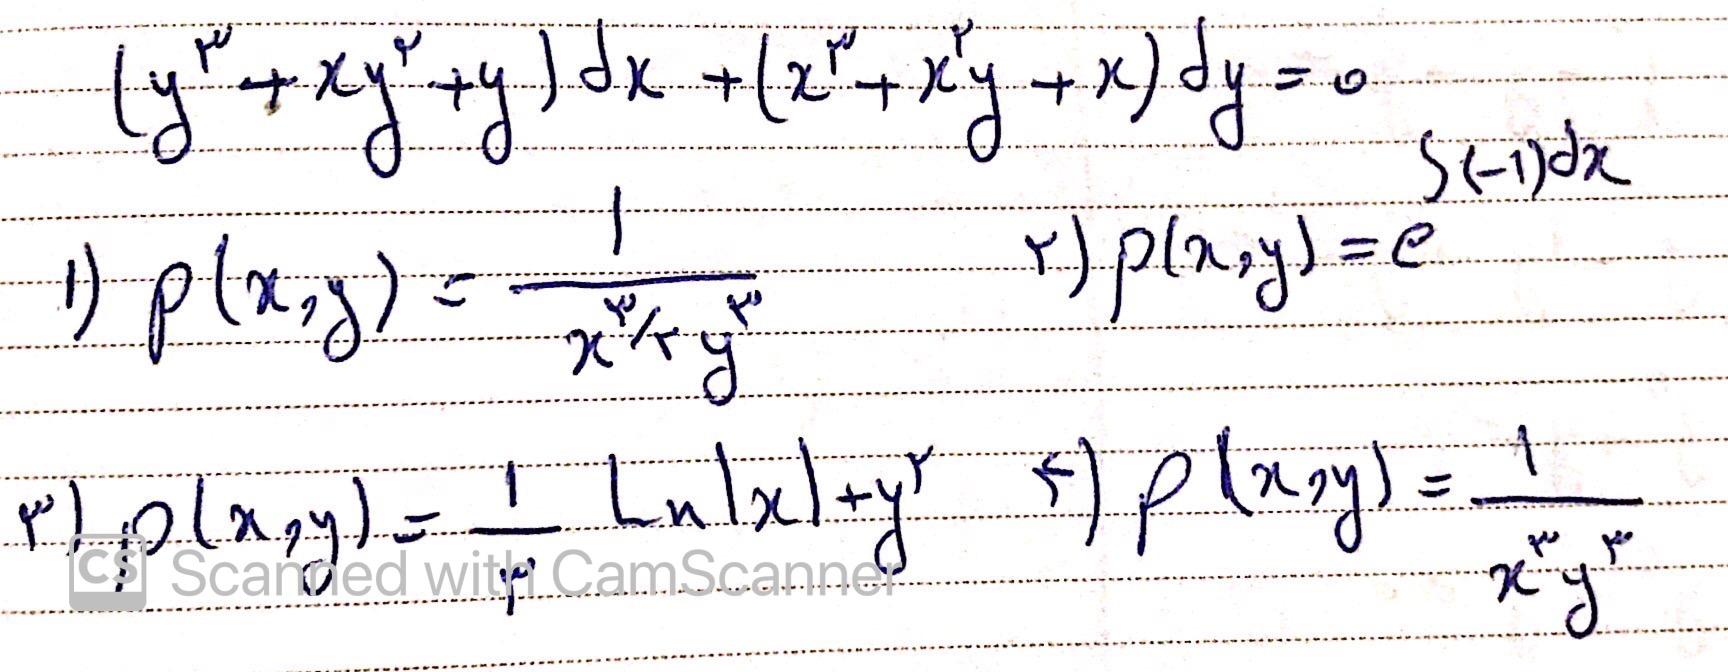 (y^۳ + xy^۲ + y) dx + (x^۳ + x^۲y + x) dy = 0
۱) p(x,y) = 1 / (x^{۳/۲} y^۳) ۲) p(x,y) = e^{∫(-1)dx}
۳) p(x,y) = 1/۲ Ln|x| + y^۲ ۴) p(x,y) = 1 / (x^۳ y^۳)
CS Scanned with CamScanner